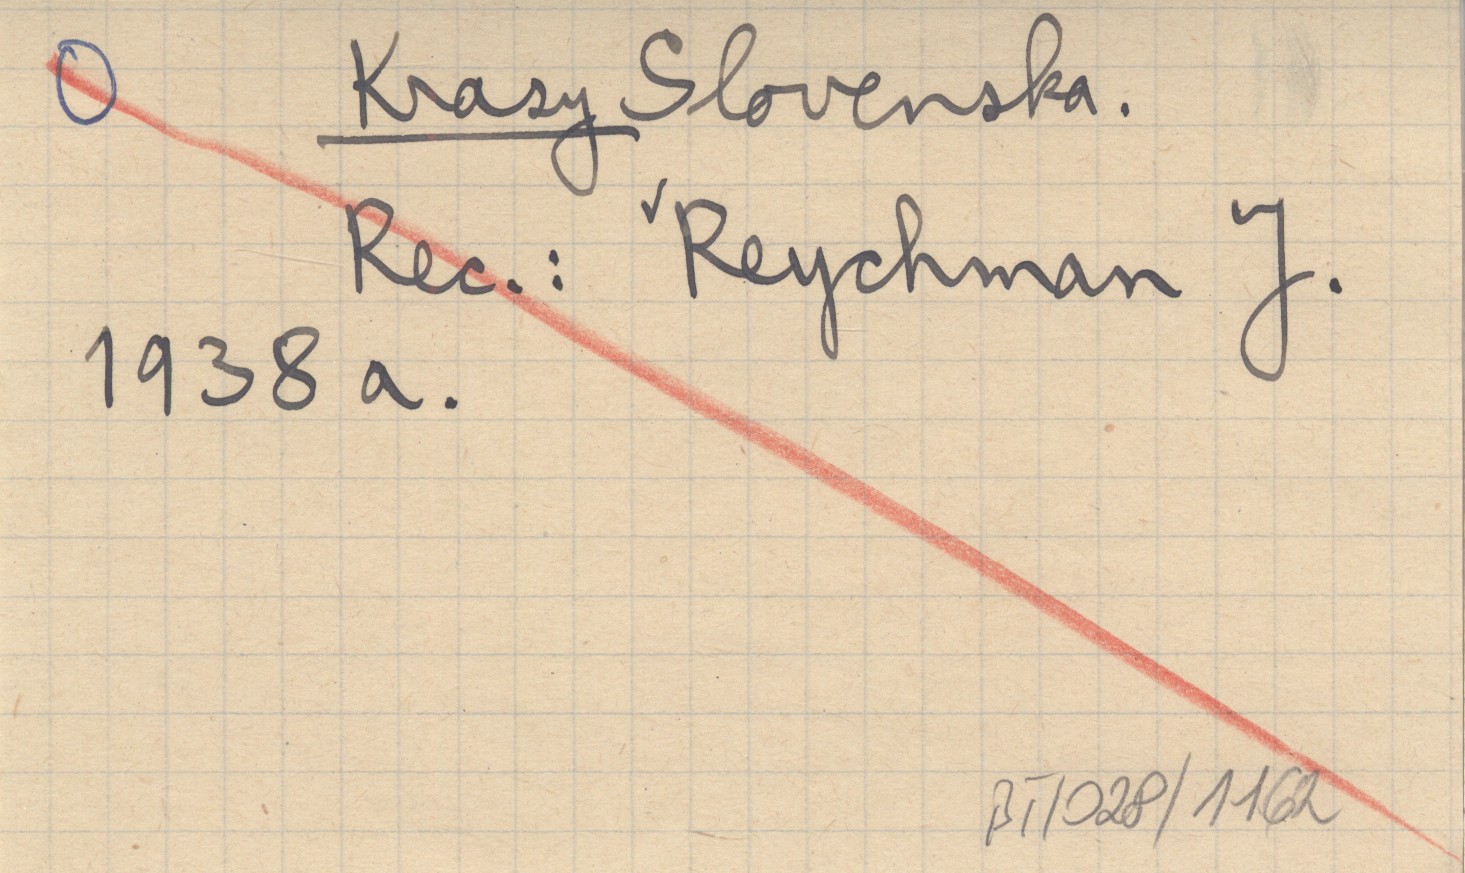 Krasy Slovenska.
Rec.: Reychman J.
1938 a.
BT/028/1162